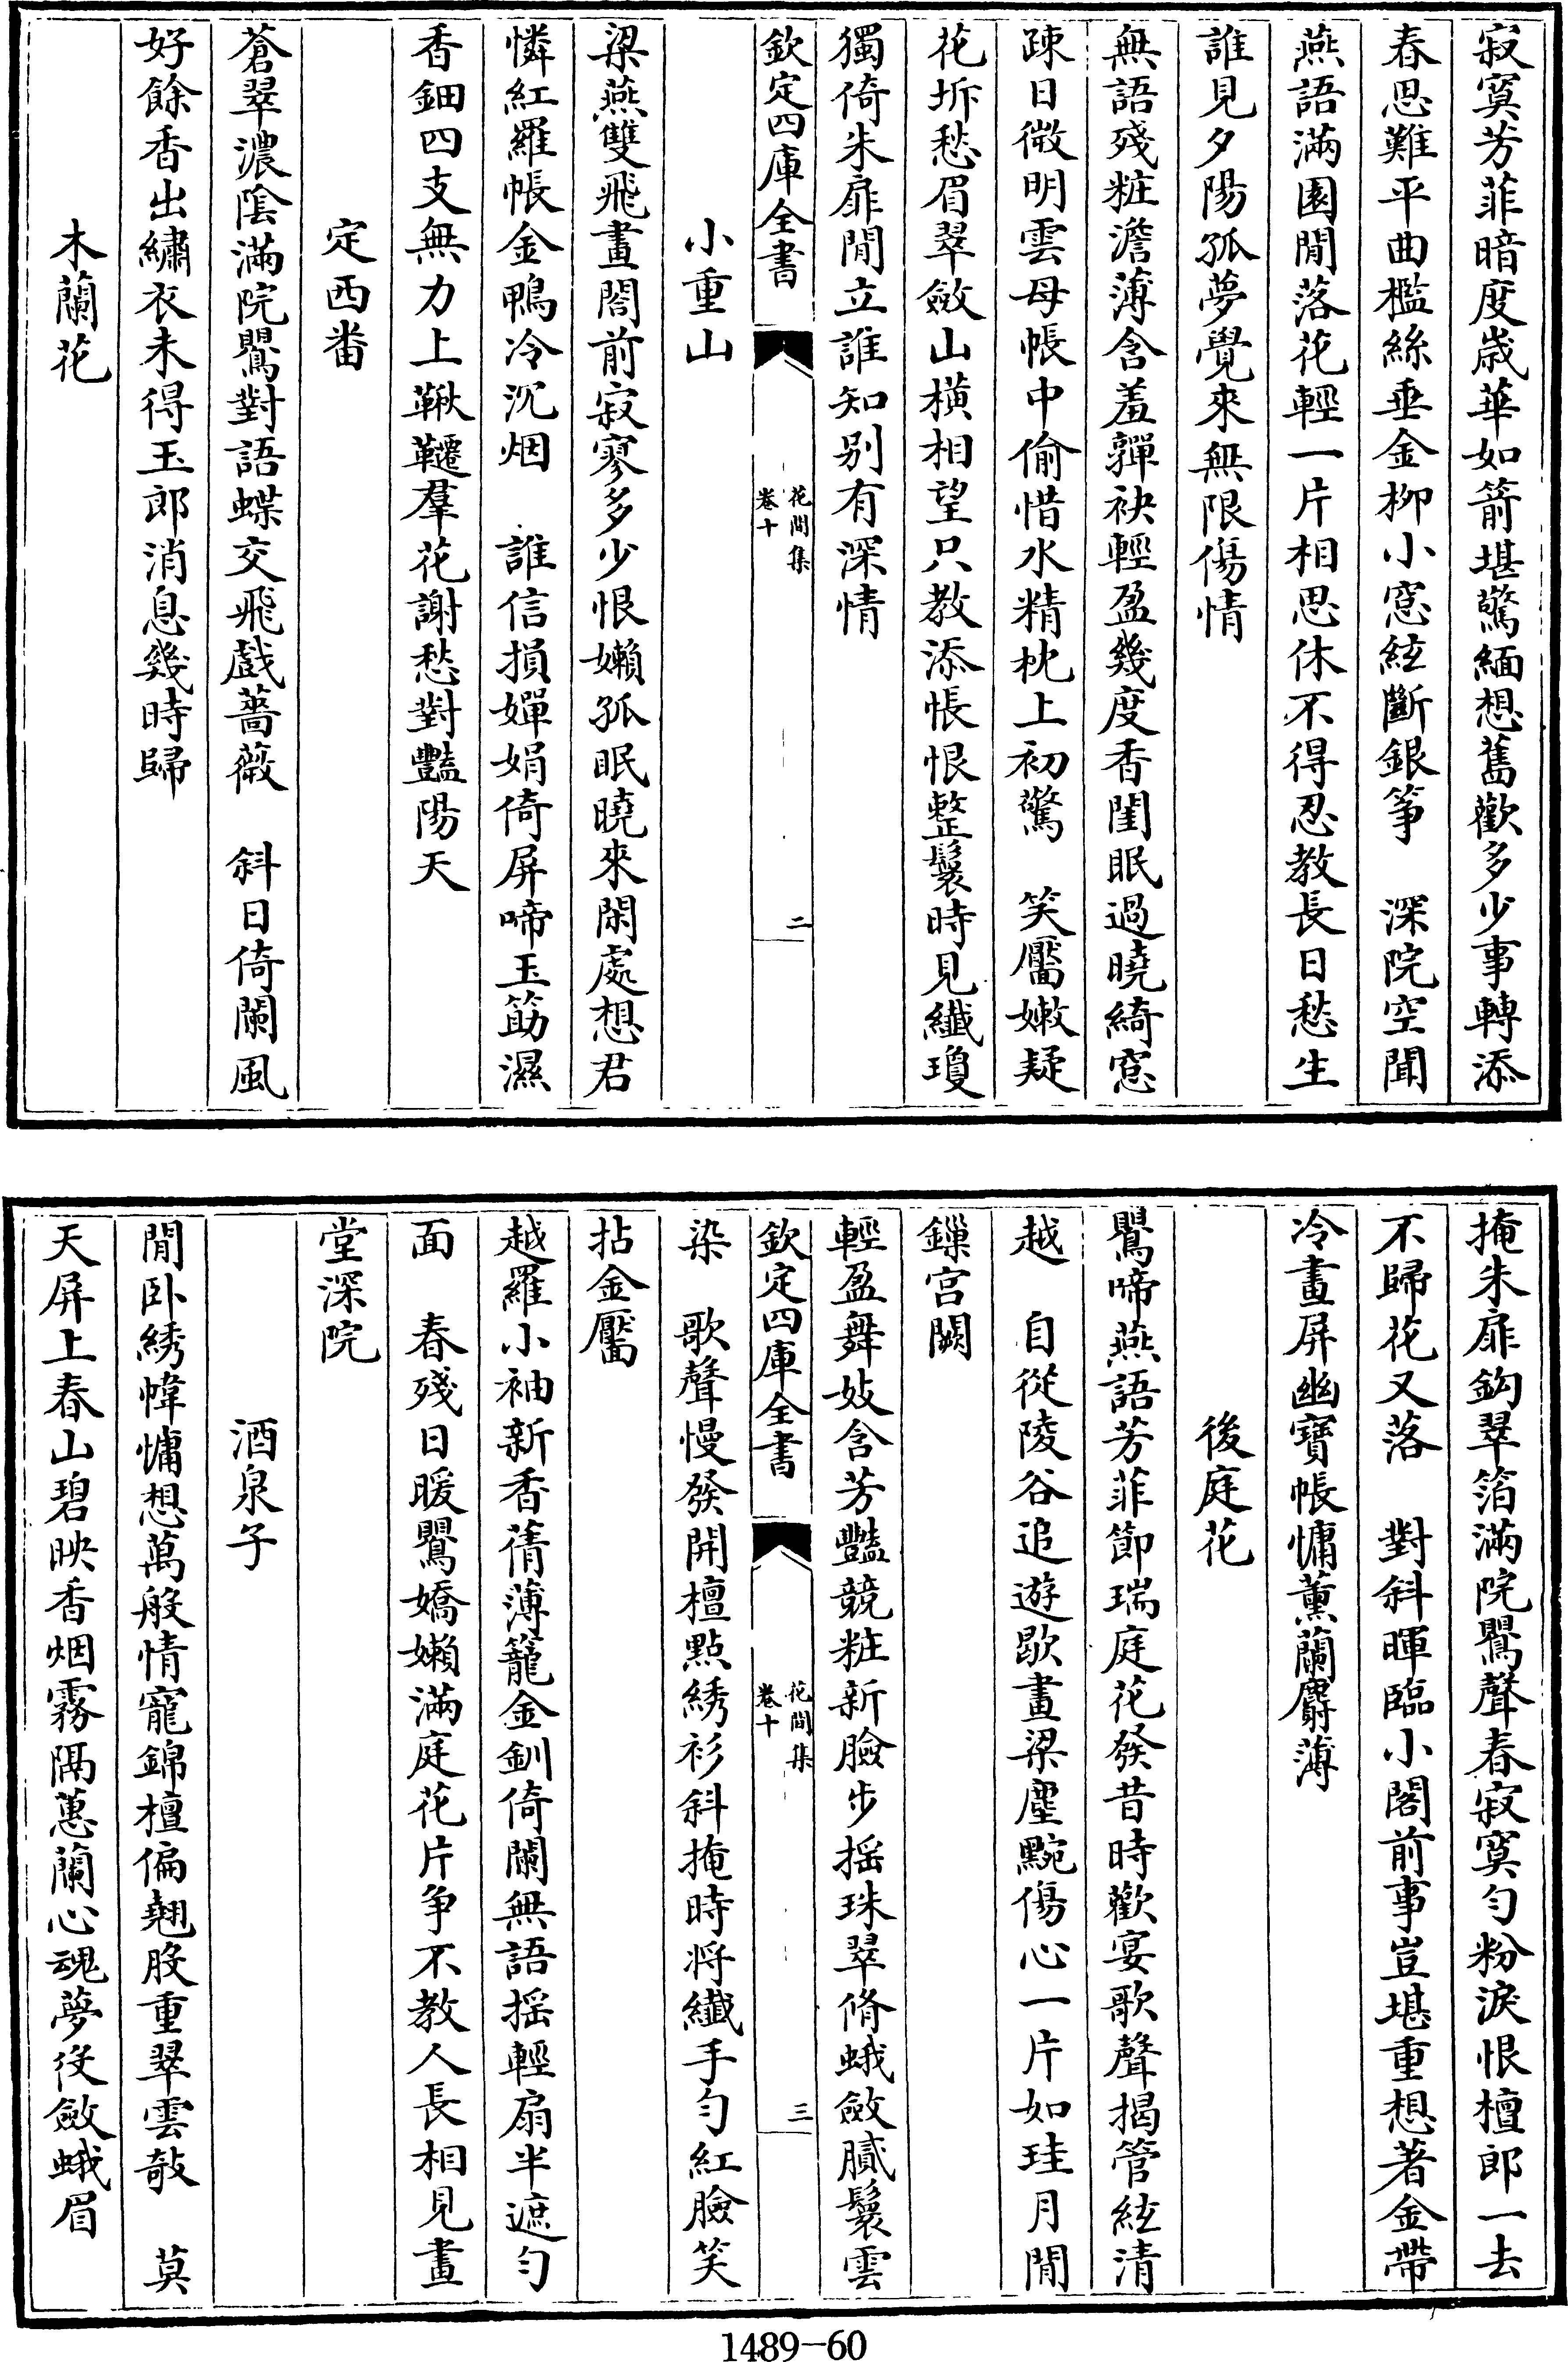 寂寞芳菲暗度歲華如箭堪驚緬想舊歡多少事轉添
春思難平曲檻絲垂金柳小窓絃斷銀箏　深院空聞
燕語滿園閒落花輕一片相思休不得忍教長日愁生
誰見夕陽孤夢覺來無限傷情
無語殘粧澹薄含羞嚲袂輕盈幾度香閨眠過曉綺窓
疎日微明雲母帳中偷惜水精枕上初驚　笑靨嫩疑
花坼愁眉翠斂山橫相望只教添悵恨整鬟時見纖瓊
獨倚朱扉閒立誰知别有深情
欽定四庫全書
花間集
卷十
二
小重山
梁燕雙飛畫閣前寂寥多少恨嬾孤眠曉來閑處想君
憐紅羅帳金鴨冷沉烟　誰信損嬋娟倚屏啼玉筯濕
香鈿四支無力上鞦韆羣花謝愁對豔陽天
定西番
蒼翠濃陰滿院鸎對語蝶交飛戲薔薇　斜日倚闌風
好餘香出繡衣未得玉郎消息幾時歸
木蘭花
掩朱扉鈎翠箔滿院鸎聲春寂寞勻粉淚恨檀郎一去
不歸花又落　對斜暉臨小閣前事豈堪重想著金帶
冷畫屏幽寶帳慵薰蘭麝薄
後庭花
鸎啼燕語芳菲節瑞庭花發昔時歡宴歌聲揭管絃清
越　自從陵谷追遊歇畫梁塵黦傷心一片如珪月閒
鏁宮闕
輕盈舞妓含芳豔競粧新臉步摇珠翠脩蛾斂膩鬟雲
欽定四庫全書
花間集
卷十
三
染　歌聲慢發開檀點綉衫斜掩時将纖手勻紅臉笑
拈金靨
越羅小袖新香蒨薄籠金釧倚闌無語摇輕扇半遮勻
面　春殘日暖鸎嬌嬾滿庭花片争不教人長相見畫
堂深院
酒泉子
閒卧綉幃慵想萬般情寵錦檀偏翹股重翠雲欹　莫
天屏上春山碧映香烟霧隔蕙蘭心魂夢役斂蛾眉
1489－60